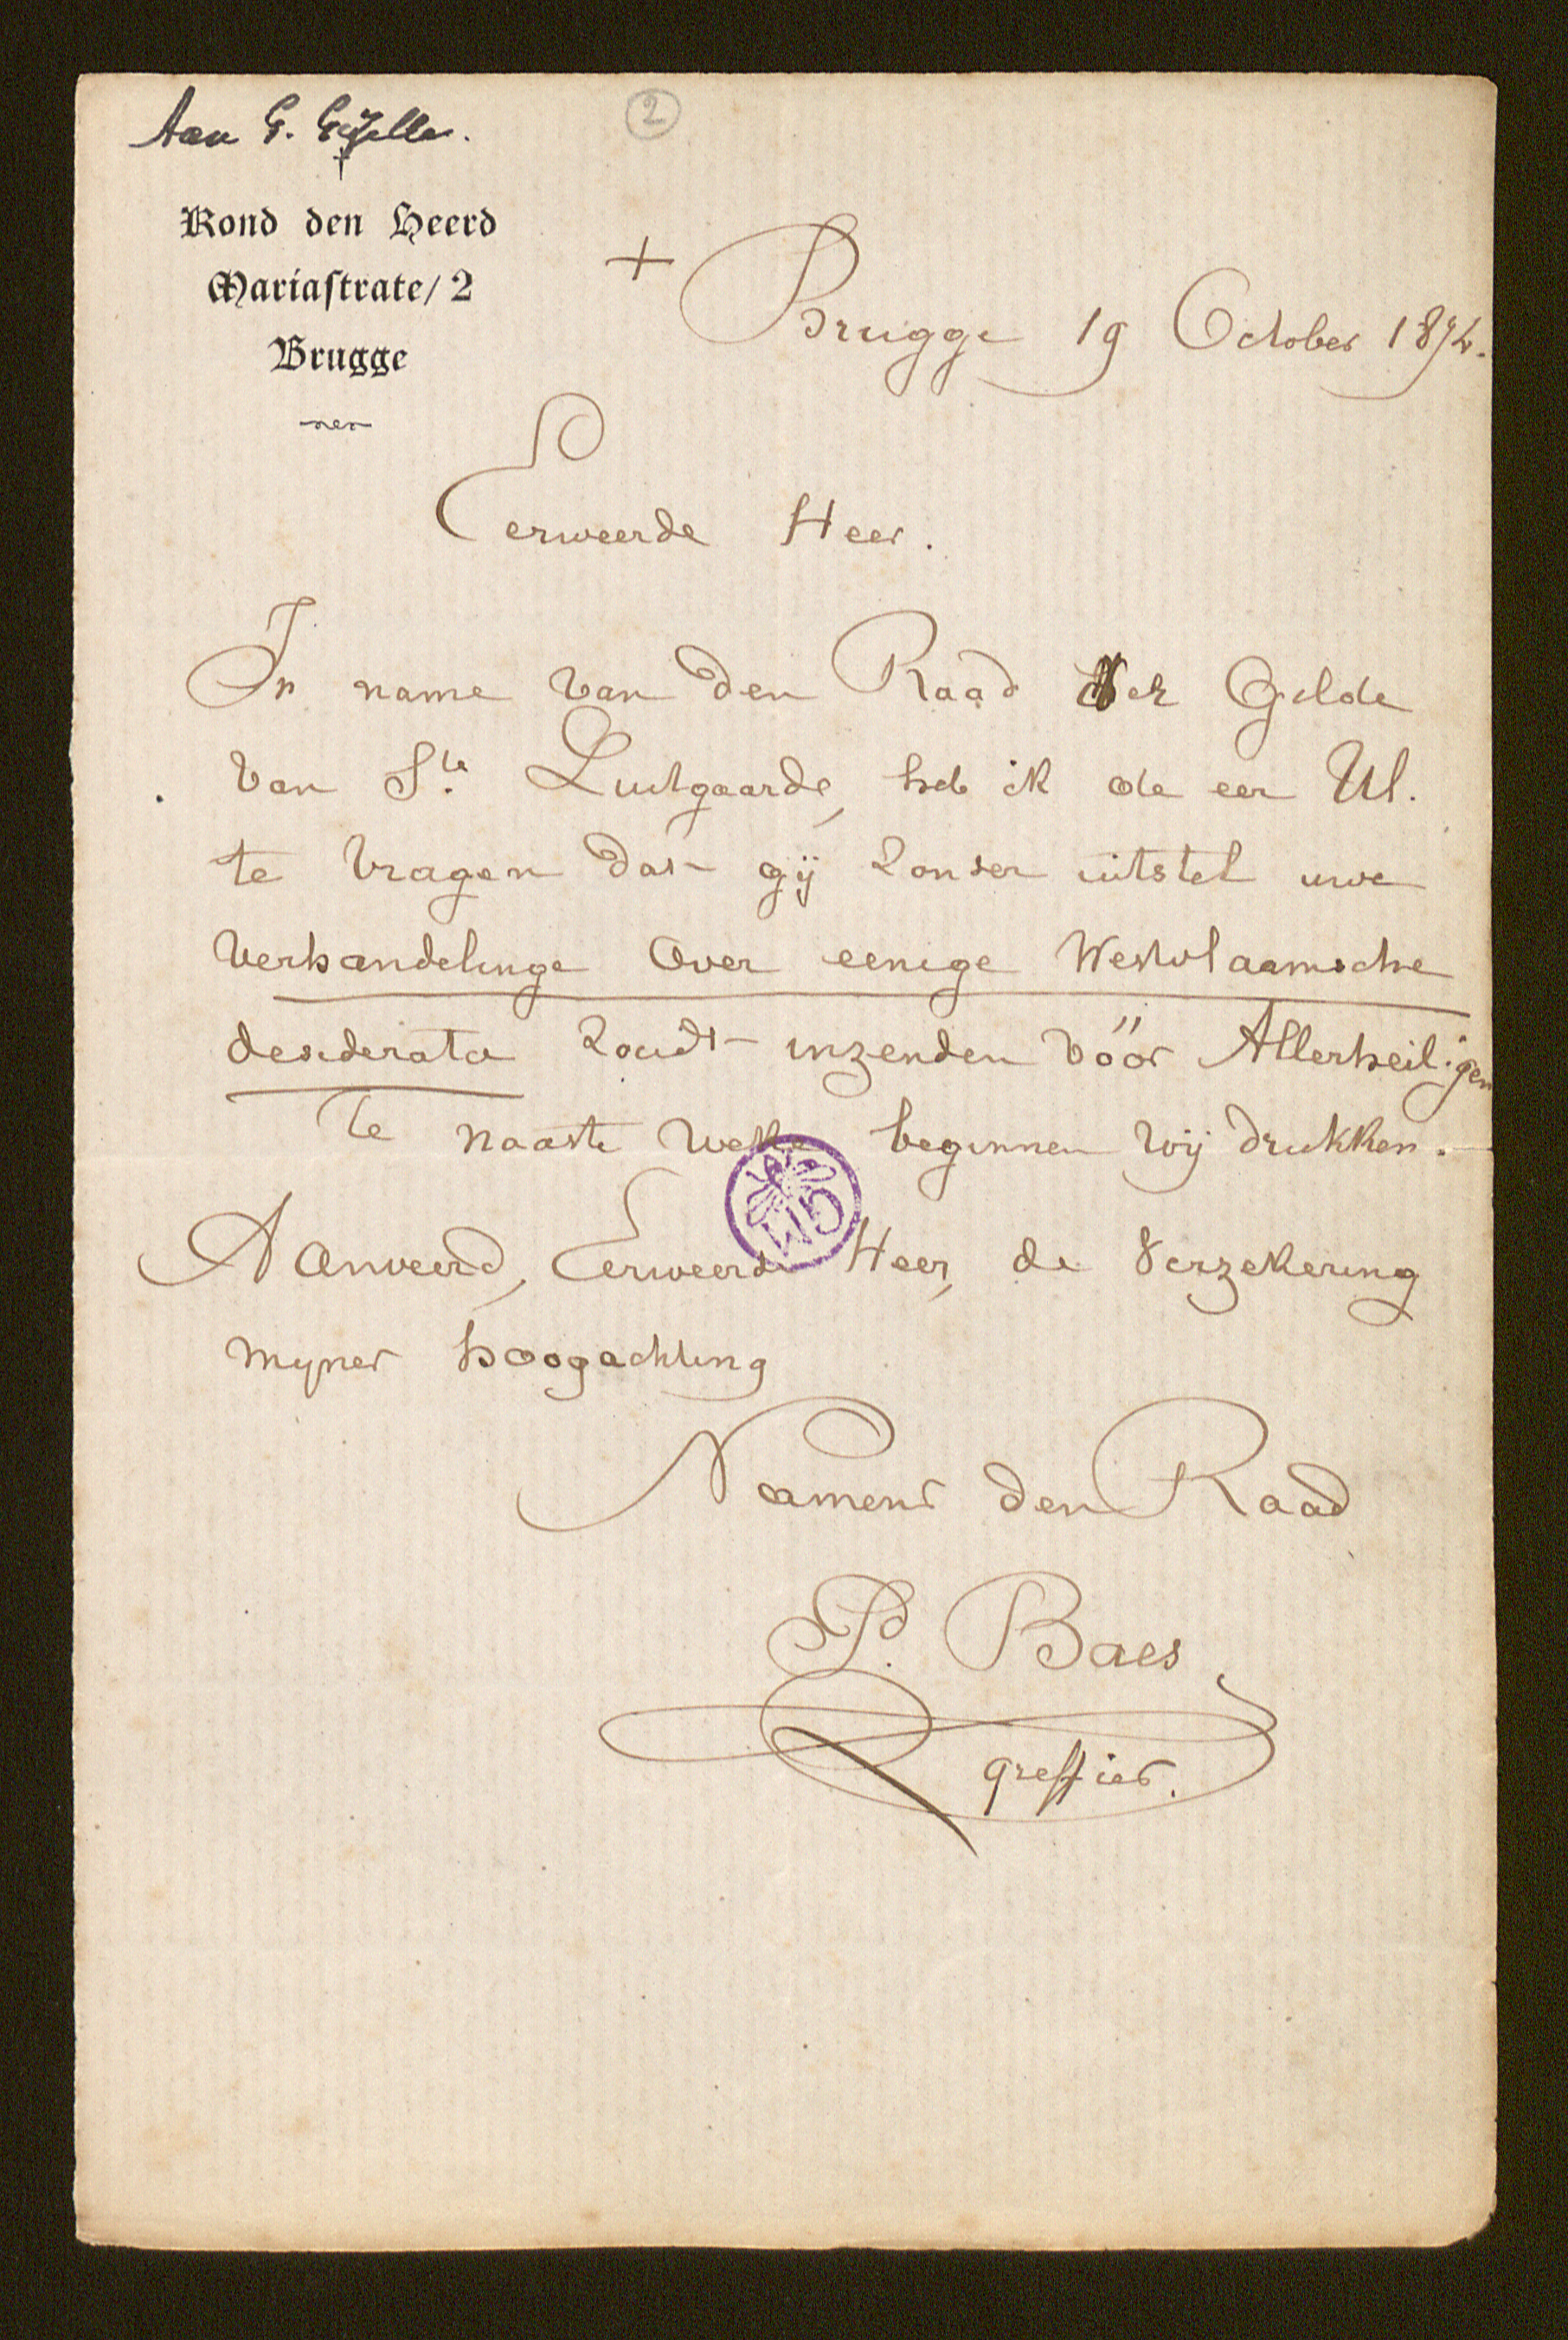 Aan G. Gezelle.
2
†
Rond den Heerd
Mariastrate/ 2
Brugge
+ Brugge 19 October 1874.
Eerweerde Heer.
In name van den Raad der Gilde
van Ste. Luitgaarde, heb ik de eer Ul.
te vragen dat gij zonder uitstel uwe
verhandelinge over eenige Westvlaamsche
desiderata zoudt inzenden vóór Allerheiligen
te naaste weke beginnen wij drukken.
Aanveerd, Eerweerde Heer, de verzekering
mijner hoogachting
Namens den Raad
P. Baes
greffier.